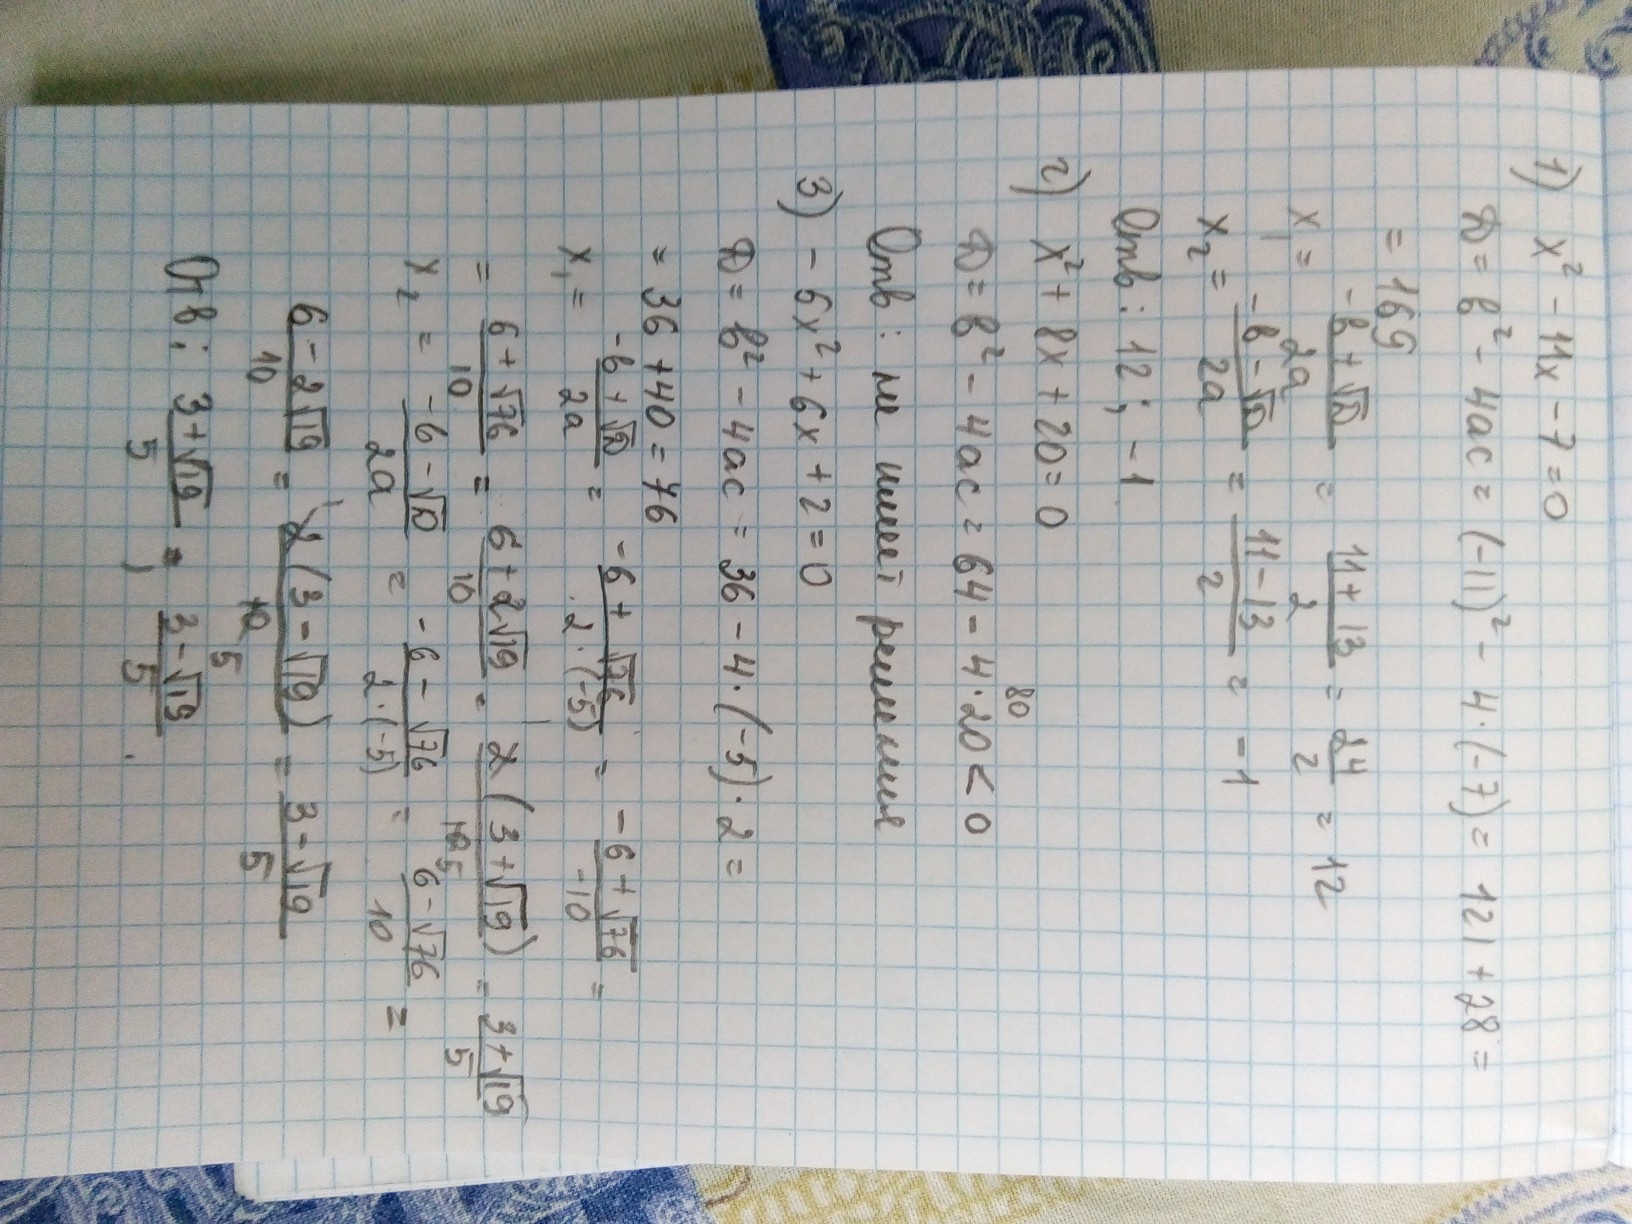 1) x² - 11x - 7 = 0
D = b² - 4ac = (-11)² - 4·(-7) = 121 + 28 =
= 169
x₁ = (-b + √D)/2a = (11 + 13)/2 = 24/2 = 12
x₂ = (-b - √D)/2a = (11 - 13)/2 = -1
Отв: 12; -1
2) x² + 8x + 20 = 0
D = b² - 4ac = 64 - 4·20 < 0 80
Отв: не имеет решения
3) - 5x² + 6x + 2 = 0
D = b² - 4ac = 36 - 4·(-5)·2 =
= 36 + 40 = 76
x₁ = (-b + √D)/2a = (-6 + √76)/(2·(-5)) = (-6 + √76)/-10 =
= (6 + √76)/10 = (6 + 2√19)/10 = 2(3 + √19)/10 5 = (3 + √19)/5
x₂ = (-b - √D)/2a = (-6 - √76)/(2·(-5)) = (6 - √76)/10 =
(6 - 2√19)/10 = 2(3 - √19)/10 5 = (3 - √19)/5
Отв: (3 + √19)/5 ; (3 - √19)/5 .